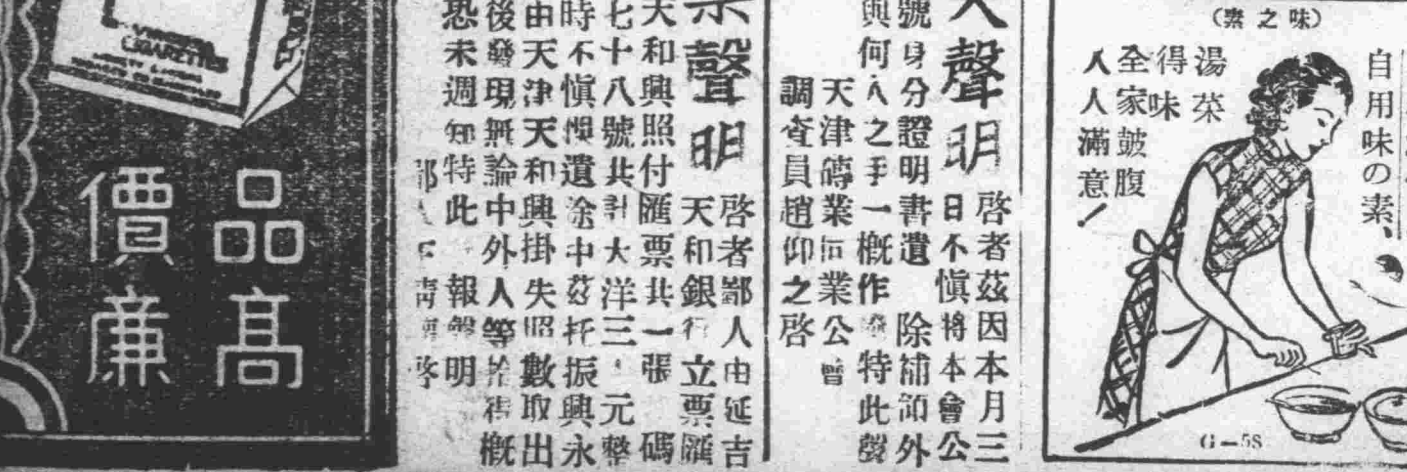 (素之味)
自用味の素、
湯菜
得味
全家皷腹
人人滿意！
G-58
聲明
啓者茲因本月三
日不慎將本會公
號身分證明書遺 除補領外
與何人之手一概作 特此聲
天津磚業同業公會
調査員趙仰之啓
聲明
啓者鄙人由延吉
天和銀行立票匯
天和興照付匯票共一張 碼
七十八號共計大洋三 元整
時不慎 遺途中茲托振興永
由天津天和興掛失照數取出
後發現無論中外人等拾得概
恐未週知特此 報聲明
啓
CIGARETTES
品高
價廉